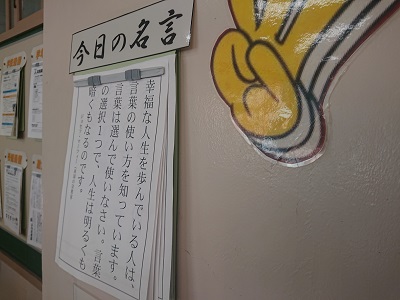 今日の名言
幸福な人生を歩んでいる人は、
言葉の使い方を知っています。
言葉は選んで使いなさい。言葉
の選択1つで、人生は明るくも
暗くもなるのです。